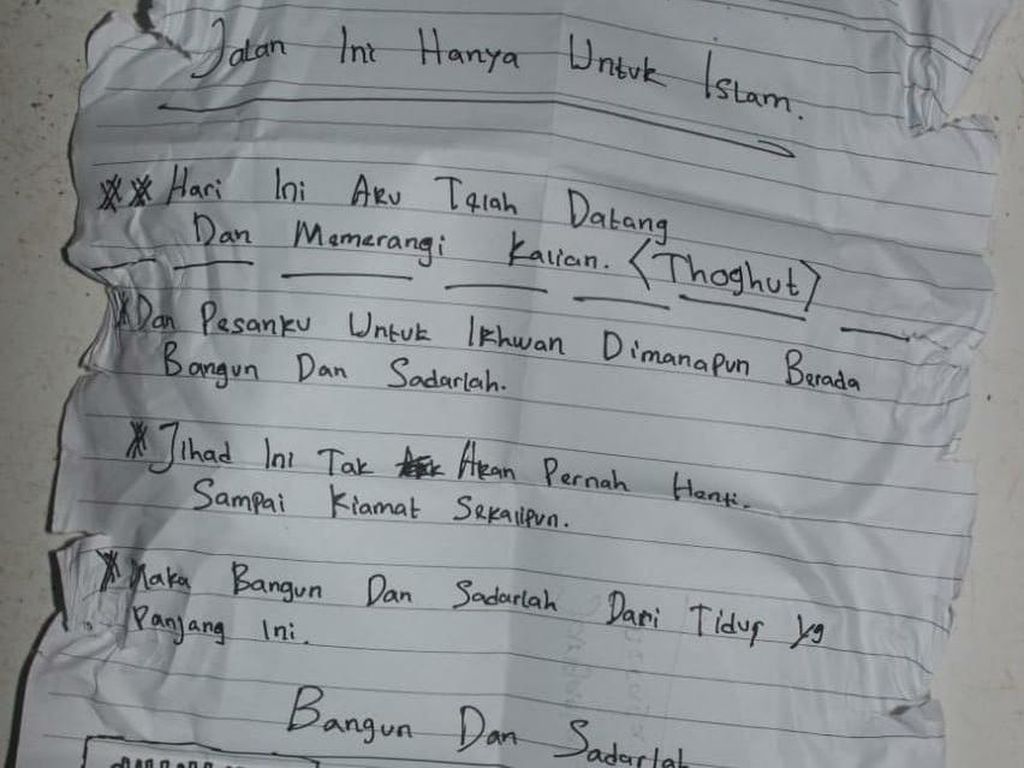 Jalan Ini Hanya Untuk Islam.
Hari Ini Aku Telah Datang
Dan Memerangi Kalian. (Thoghut)
Dan Pesanku Untuk Ikhwan Dimanapun Berada
Bangun Dan Sadarlah.
Jihad Ini Tak Akan Pernah Henti.
Sampai Kiamat Sekalipun.
Maka Bangun Dan Sadarlah Dari Tidur yg
Panjang Ini.
Bangun Dan Sadarlah